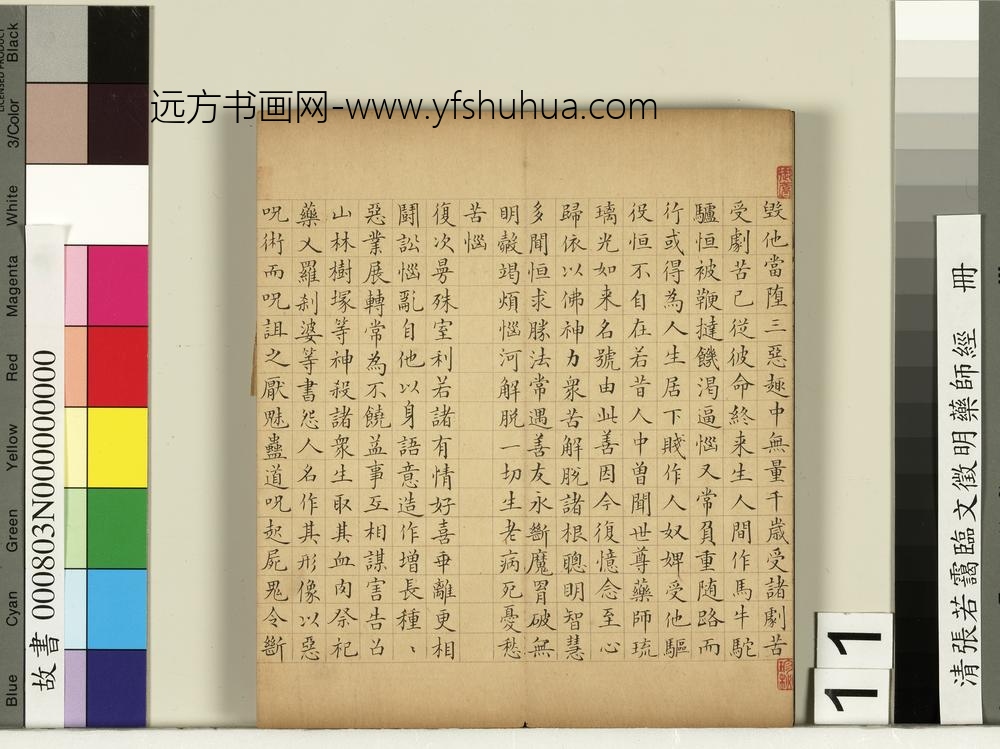 远方书画网-www.yfshuhua.com
毀他當堕三惡趣中無量千歲受諸劇苦
受劇苦已從彼命終来生人間作馬牛駝
驢恒被鞭撻饑渴逼惱又常負重随路而
行或得為人生居下賤作人奴婢受他驅
役恒不自在若昔人中曾聞世尊藥師琉
璃光如来名號由此善因今復憶念至心
歸依以佛神力衆苦解脱諸根聰明智慧
多聞恒求勝法常遇善友永斷魔罥破無
明㲉竭煩惱河解脱一切生老病死憂愁
苦惱
復次曼殊室利若諸有情好喜乖離更相
鬬訟惱亂自他以身語意造作增長種、
惡業展轉常為不饒益事互相謀害告召
山林樹塚等神殺諸衆生取其血肉祭祀
藥乂羅刹婆等書怨人名作其形像以惡
呪術而呪詛之厭魅蠱道呪起屍鬼令斷
故書 000803N000000000
清張若靄臨文徵明藥師經 冊
11
LICENSED PRODUCT
Black
3/Color
White
Magenta
Red
Yellow
Green
Cyan
Blue